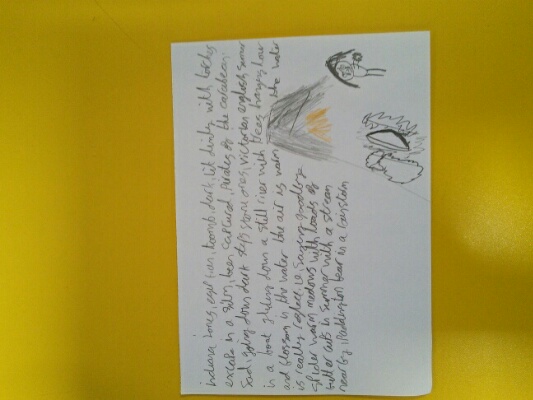 indiana Jones, egyptian, tomb, dark, lit dimly with torches
escape in a film, been captured, Pirates of the caribbean
Sad, going down dark steps stone ones, victorian english summer
in a boat gliding down a still river with trees hanging low
and blossom in the water the air is warm the water
is really i.e. saying goodbye
warm medows with loads of
in summer with a stream
near by, Paddington bear in a rainstorm